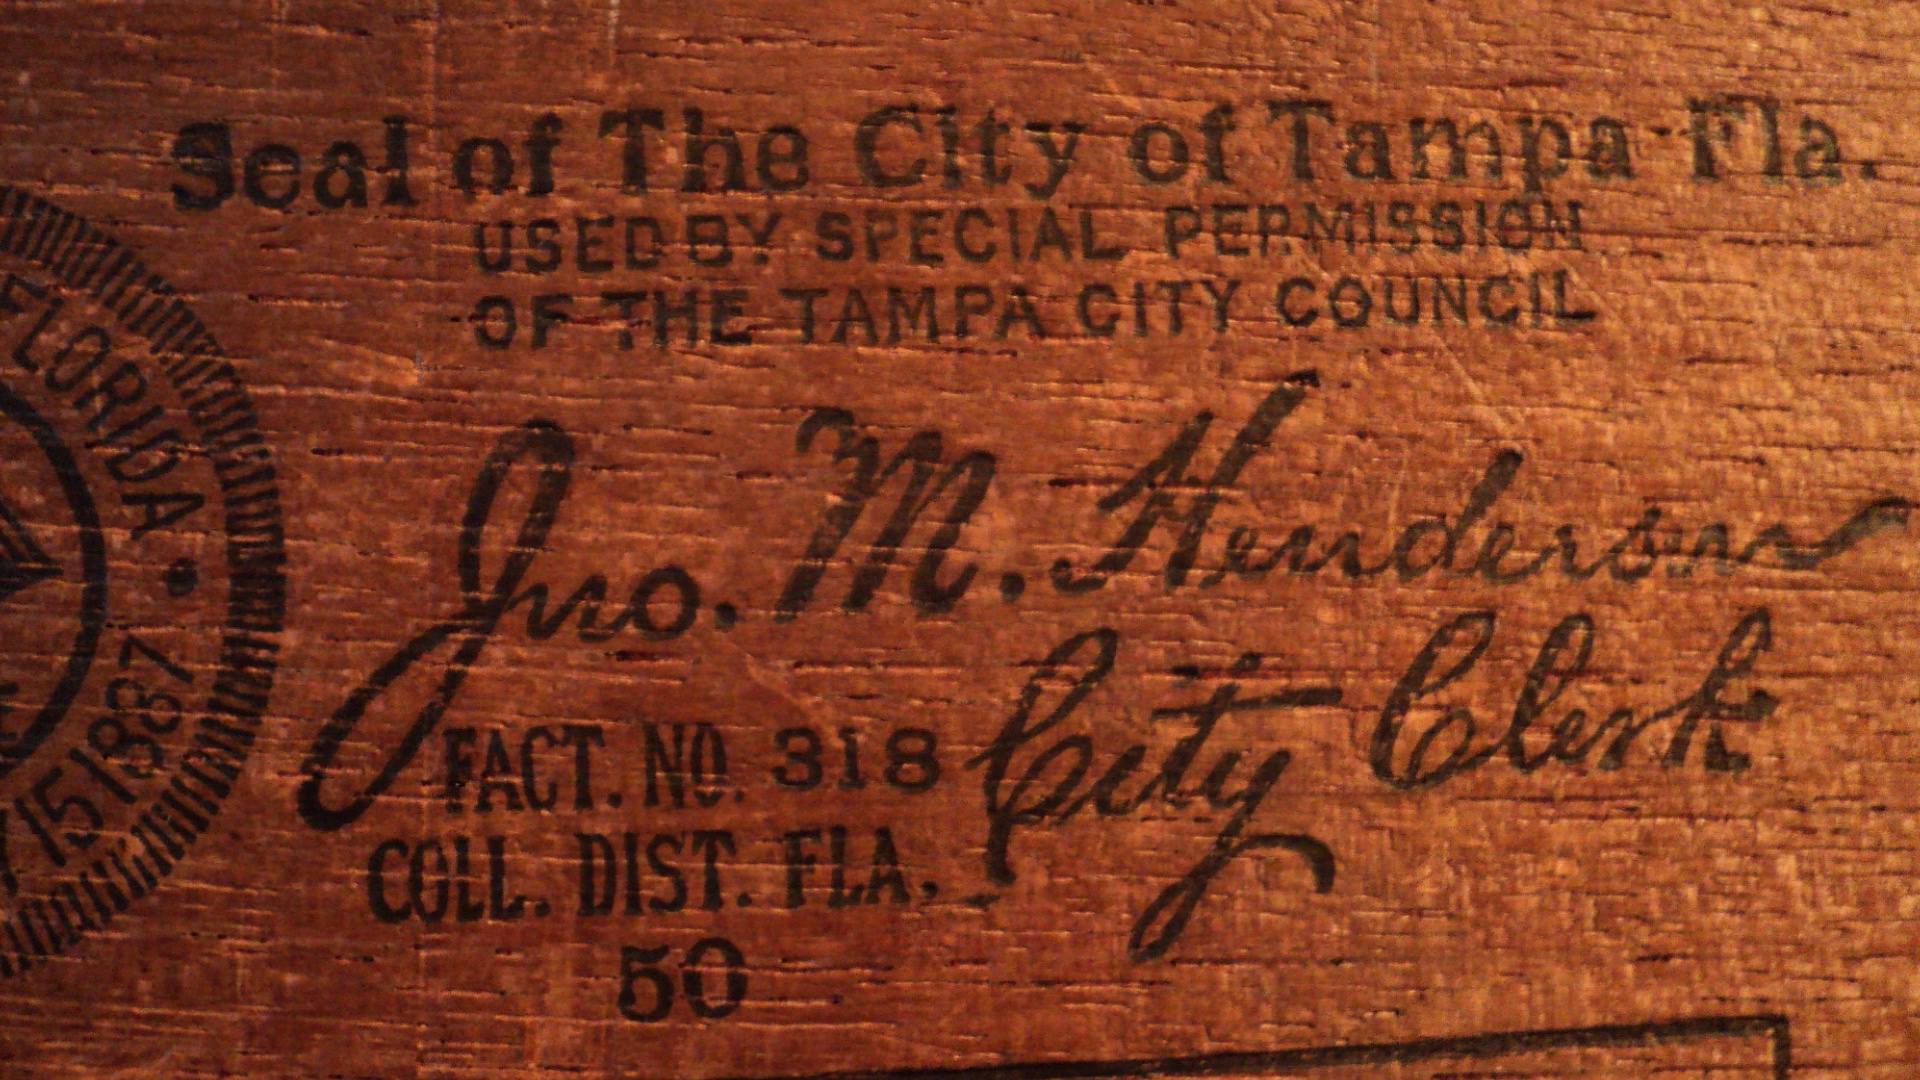 Seal of The City of Tampa Fla.
USED BY SPECIAL PERMISSION
OF THE TAMPA CITY COUNCIL
Jno. M. Henderson
City Clerk
FACT. NO. 318
COLL. DIST. FLA.
50
FLORIDA •
15 1887